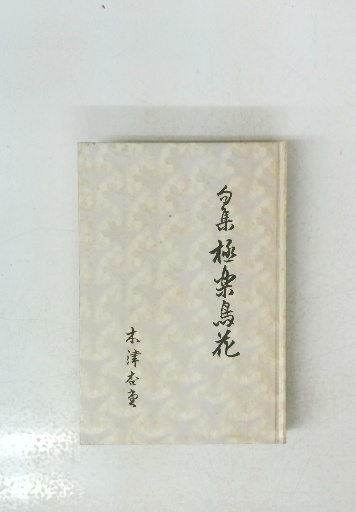 句集 極楽鳥花
木津杏堂